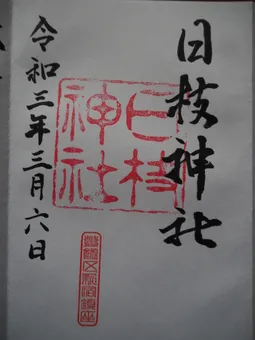 日枝神社
日枝神社
令和三年三月六日